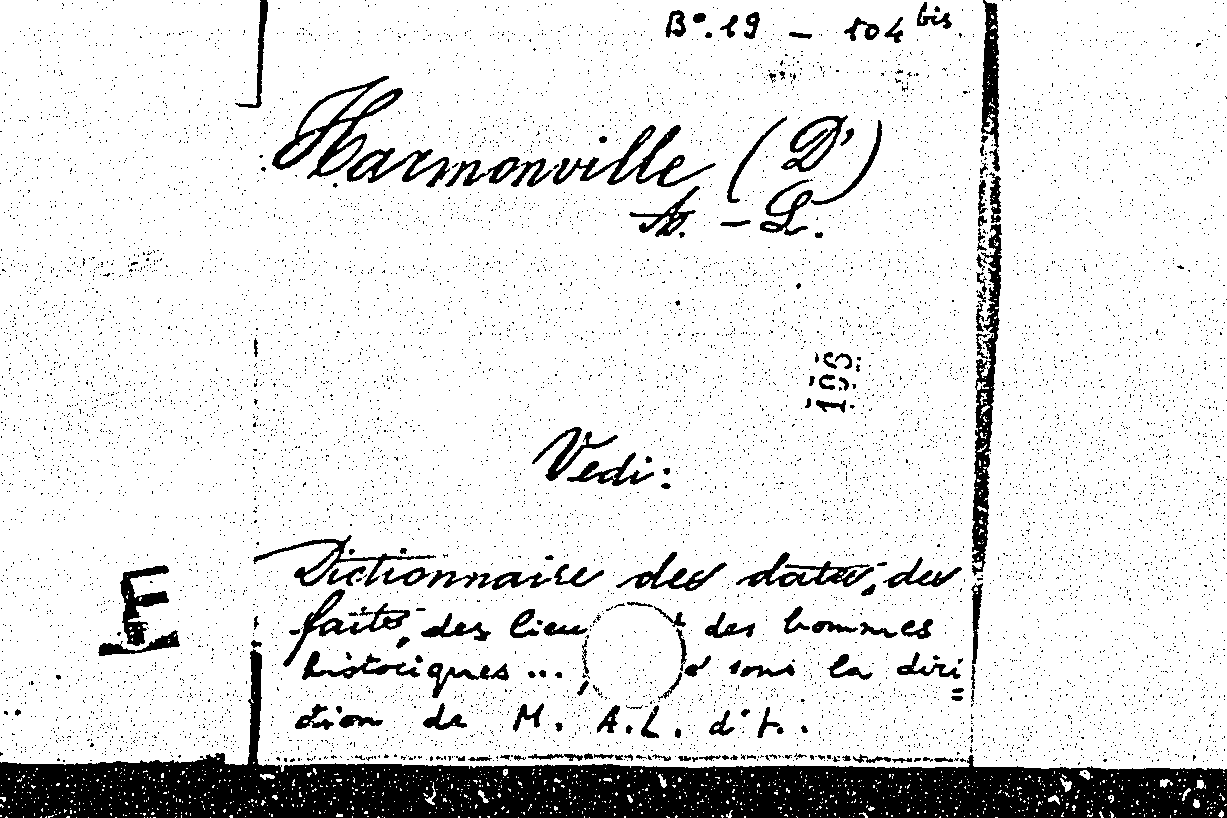 Bº. 19 - 104 bis
Harmonville (D')
A. - L.
195
Vedi:
Dictionnaire des dates, des
faits, des lieu des hommes
historiques ..., sous la diri
=
ction de M. A. L. d'H.
E